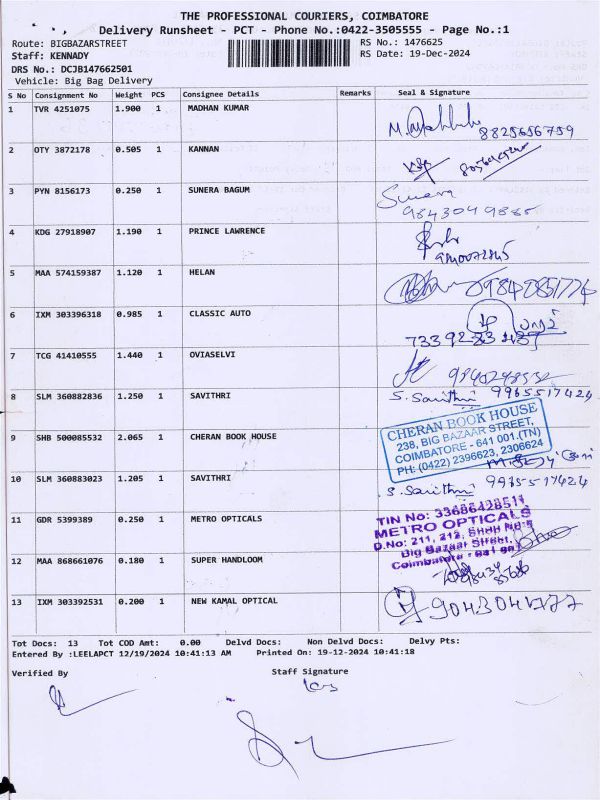 THE PROFESSIONAL COURIERS, COIMBATORE
Delivery Runsheet - PCT - Phone No.:0422-3505555 - Page No.:1
Route: BIGBAZARSTREET RS No.: 1476625
Staff: KENNADY RS Date: 19-Dec-2024
DRS No.: DCJB147662501
Vehicle: Big Bag Delivery
S No Consignment No Weight PCS Consignee Details Remarks Seal & Signature
1 TVR 4251075 1.900 1 MADHAN KUMAR
8825656759
2 OTY 3872178 0.505 1 KANNAN
3 PYN 8156173 0.250 1 SUNERA BAGUM Sunera
4 KDG 27918907 1.190 1 PRINCE LAWRENCE
5 MAA 574159387 1.120 1 HELAN
6 IXM 303396318 0.985 1 CLASSIC AUTO
7 TCG 41410555 1.440 1 OVIASELVI
8 SLM 360882836 1.250 1 SAVITHRI S. Savithri 9965517424
9 SHB 500085532 2.065 1 CHERAN BOOK HOUSE
CHERAN BOOK HOUSE
238, BIG BAZAAR STREET,
COIMBATORE - 641 001.(TN)
PH: (0422) 2396623, 2306624
10 SLM 360883023 1.205 1 SAVITHRI S. Savithri 9965517424
11 GDR 5399389 0.250 1 METRO OPTICALS
TIN No: 33686428511
METRO OPTICALS
D.No: 211, 212, Shop No:5
Big Bazaar Street,
12 MAA 868661076 0.180 1 SUPER HANDLOOM
13 IXM 303392531 0.200 1 NEW KAMAL OPTICAL
Tot Docs: 13 Tot COD Amt: 0.00 Delvd Docs: Non Delvd Docs: Delvy Pts:
Entered By :LEELAPCT 12/19/2024 10:41:13 AM Printed On: 19-12-2024 10:41:18
Verified By Staff Signature